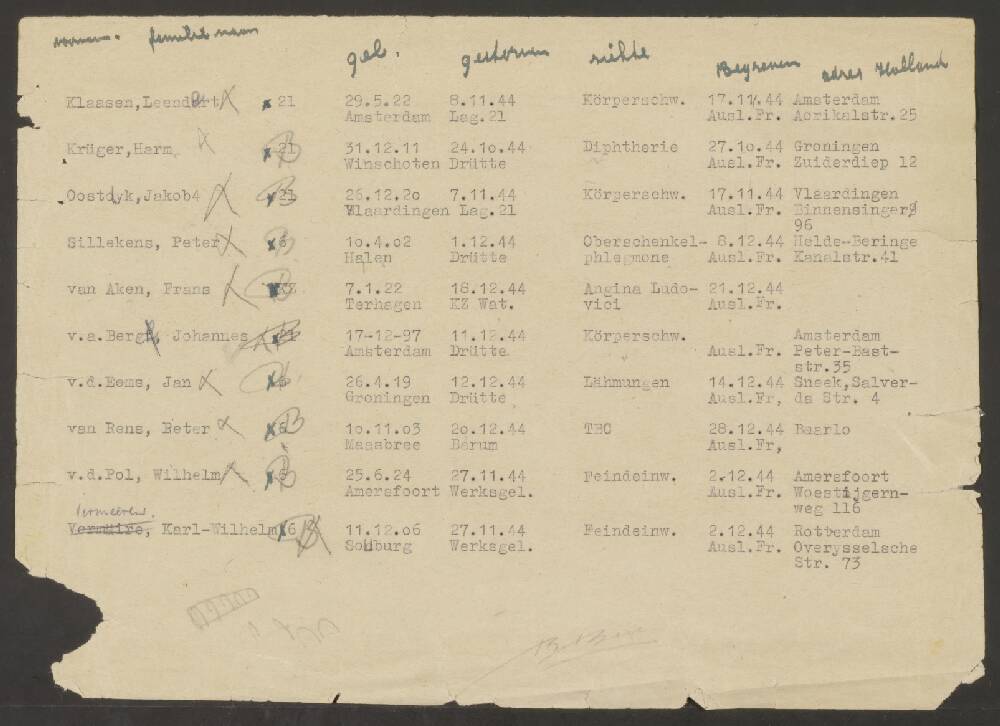 voornaam. familie naam geb. gestorven ziekte Begraven adres Holland
Klaasen,Leendert x 21 29.5.22 8.11.44 Körperschw. 17.11.44 Amsterdam
Amsterdam Lag.21 Ausl.Fr. Acrikalstr.25
Krüger,Harm x 21 31.12.11 24.10.44 Diphtherie 27.10.44 Groningen
Winschoten Drütte Ausl.Fr. Zuiderdiep 12
Oostdyk,Jakob4 x 21 26.12.20 7.11.44 Körperschw. 17.11.44 Vlaardingen
Vlaardingen Lag.21 Ausl.Fr. Binnensinger
96
Sillekens, Peter x6 10.4.02 1.12.44 Oberschenkel- 8.12.44 Helde-Beringe
Halen Drütte phlegmone Ausl.Fr. Kanalstr.41
van Aken, Frans KZ 7.1.22 18.12.44 Angina Ludo- 21.12.44
Terhagen KZ Wat. vici Ausl.Fr.
v.d.Berg, Johannes x21 17-12-97 11.12.44 Körperschw. Amsterdam
Amsterdam Drütte Ausl.Fr. Peter-Bast-
str.35
v.d.Eems, Jan x6 26.4.19 12.12.44 Lähmungen 14.12.44 Sneek,Salver-
Groningen Drütte Ausl.Fr, da Str. 4
van Rens, Peter x6 10.11.03 20.12.44 TBC 28.12.44 Baarlo
Maasbree Berum Ausl.Fr,
v.d.Pol, Wilhelm x6 25.6.24 27.11.44 Feindeinw. 2.12.44 Amersfoort
Amersfoort Werksgel. Ausl.Fr. Woestijgern-
weg 116
Vermeeren
Vermaire, Karl-Wilhelm x6 11.12.06 27.11.44 Feindeinw. 2.12.44 Rotterdam
Soüburg Werksgel. Ausl.Fr. Overysselsche
Str. 73